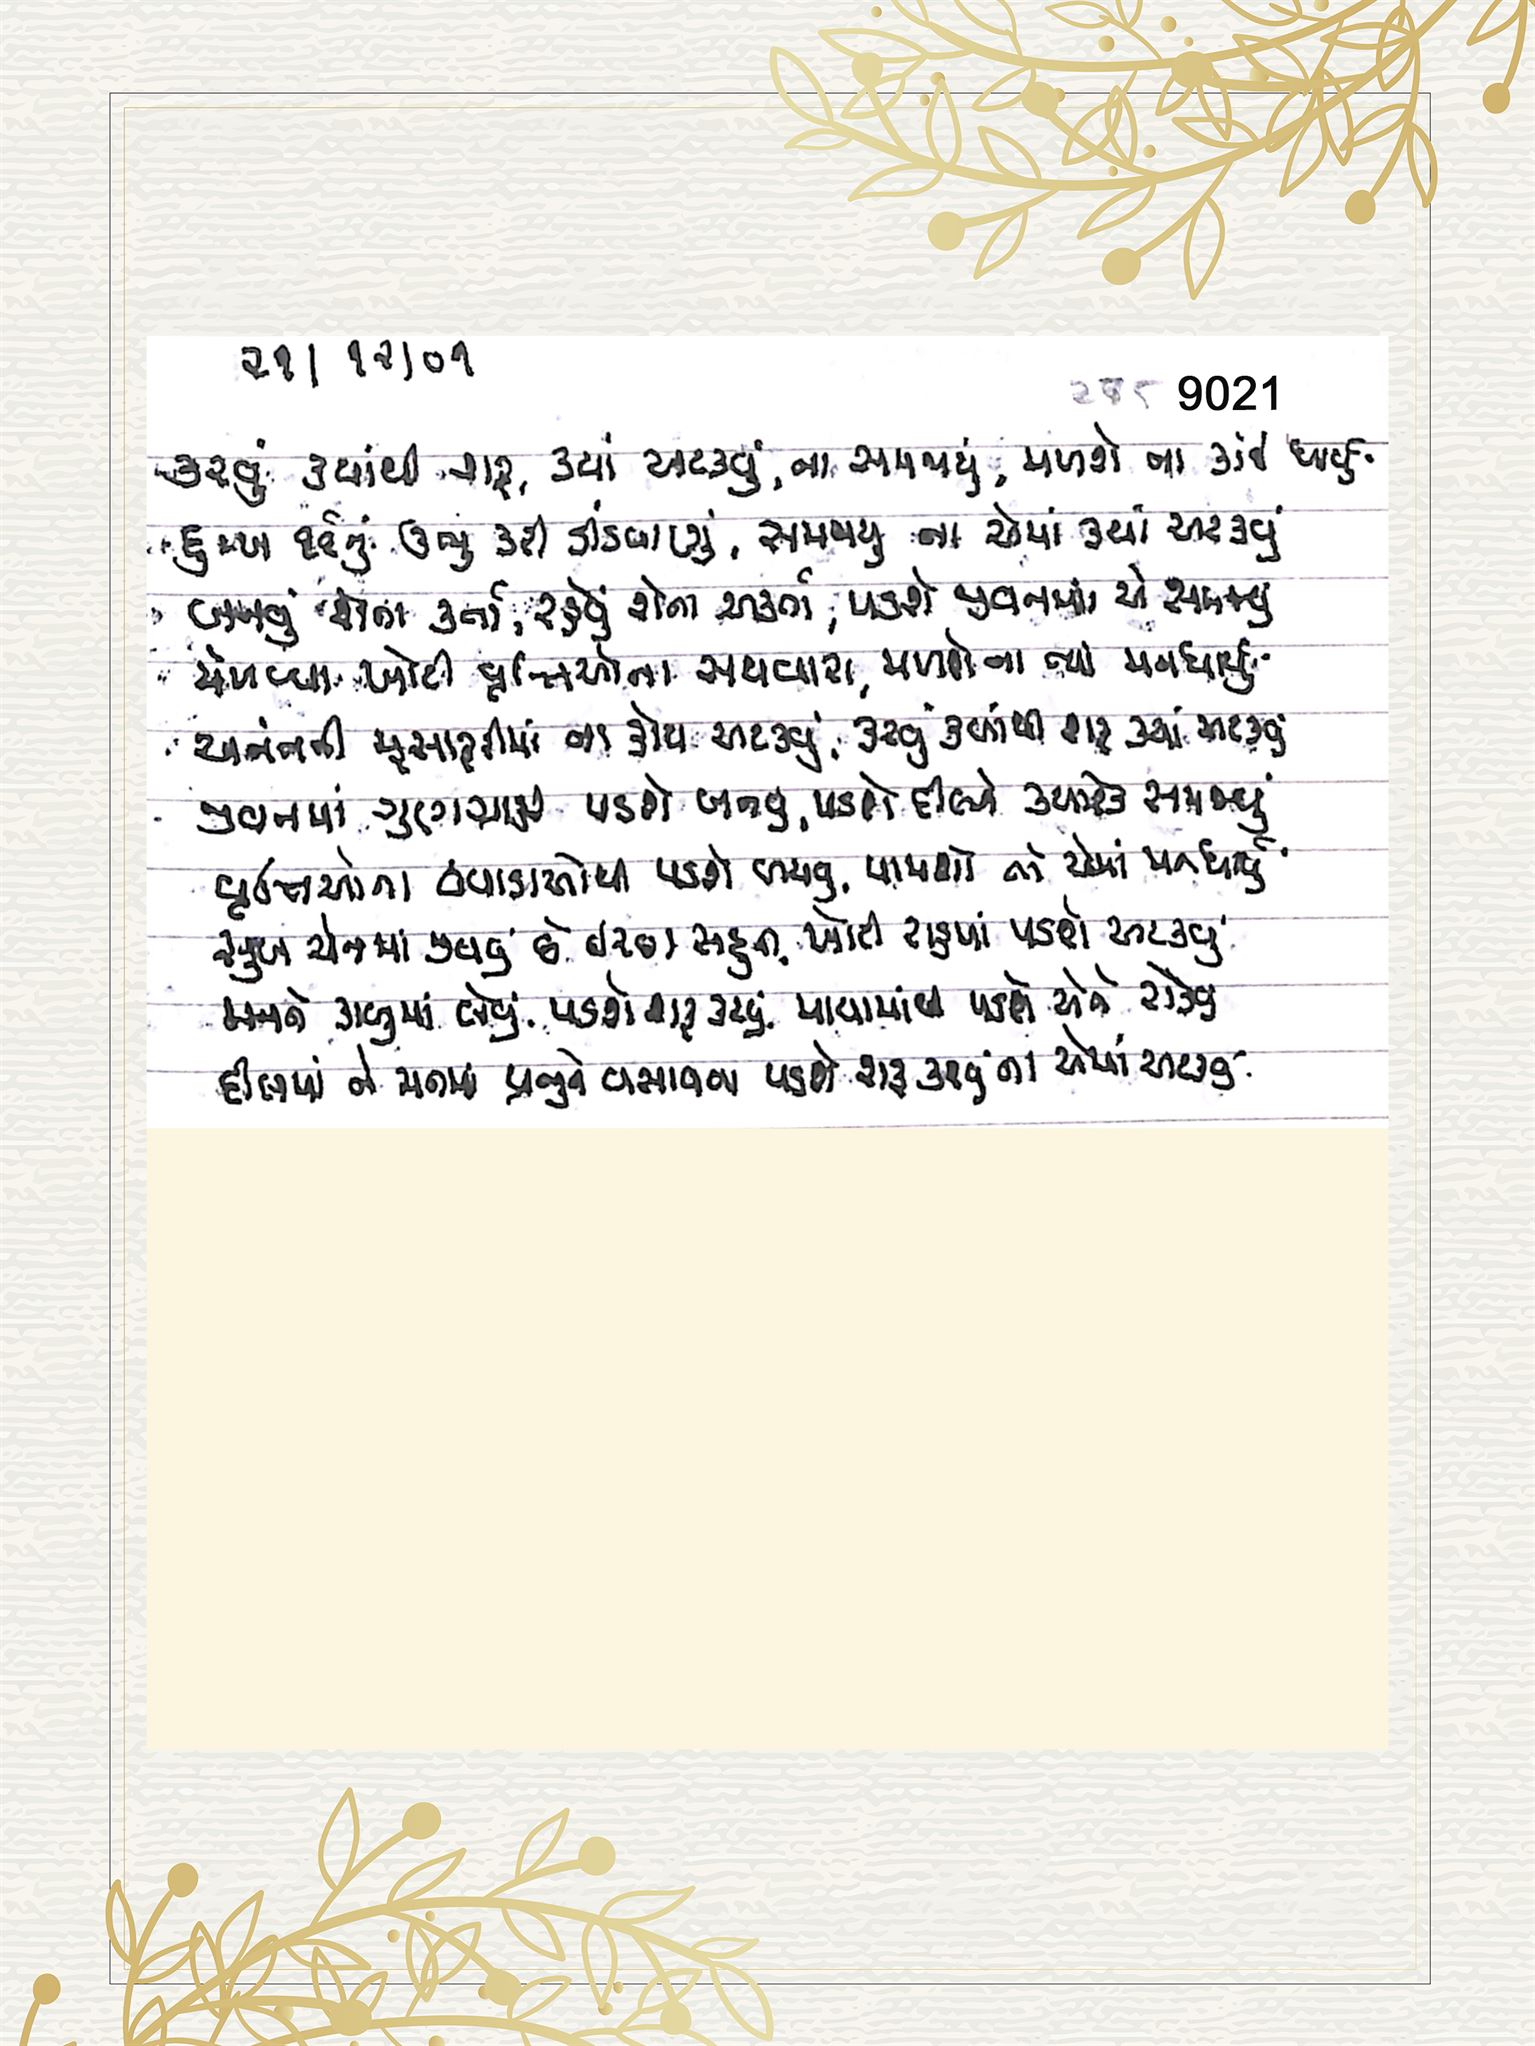 ૨૧/ ૧૨/૦૧
9021
કરવું ક્યાંથી શરૂ, ક્યાં અટકવું, ના સમજાયું, મળશે ના કાંઈ ધાર્યું
દુઃખ દર્દનું ઉભુ કરી હીંડવાણું, સમજાયુ ના એમાં ક્યાં અટકવું
બનવું શેના કર્તા, રહેવું શેના અકર્તા, પડશે જીવનમાં એ સમજવું
મેળવ્યા ખોટી વૃત્તિઓના સથવારા, મળશે ના ત્યાં મનધાર્યું
અનંતની મુસાફરીમાં ના હોય અટકવું, કરવું ક્યાંથી શરૂ ક્યાં અટકવું
જીવનમાં ગુણગ્રાહી પડશે બનવુ, પડશે દીલને સમજવું
વૃત્તિઓના હવાડાઓથી પડશે બચવુ, પામશો ના એમાં મનધાર્યું
સુખ ચેનમાં જીવવું છે ઈચ્છા સહુની, ખોટી રાહમાં પડશે અટકવું
મનને કાબુમાં લેવું પડશે શરૂ કરવું, માયામાંથી પડશે એને રોકવુ
દીલમાં ને મનમાં પ્રભુને વસાવવા પડશે શરૂ કરવું ના એમાં અટકવુ